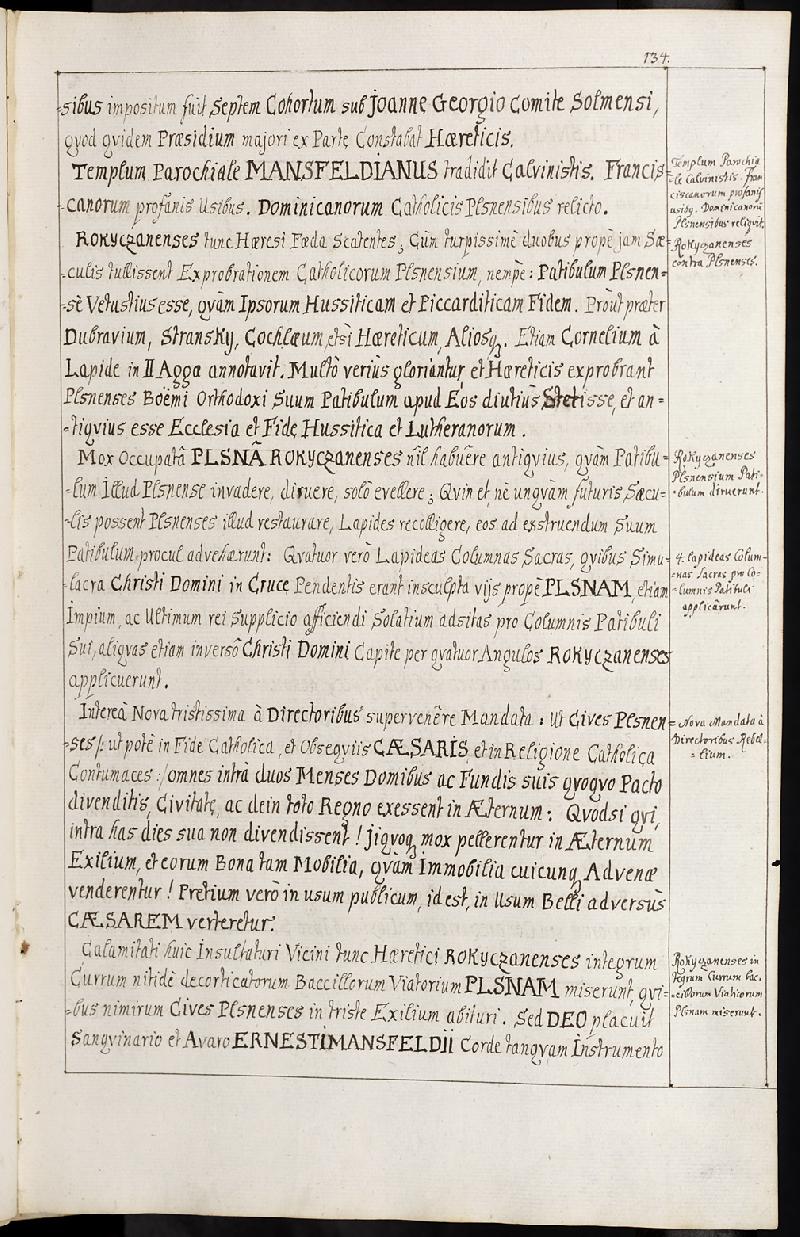 134.
-sibus impositum fuit Septem Cohortum sub Joanne Georgio Comite Solmensi,
qvod qvidem Præsidium majori ex Parte Constabat Hæreticis.
Templum Parochiale MANSFELDIANUS tradidit Calvinistis. Francis=
-canorum profanis Usibus. Dominicanorum Catholicis Plsnensibus relicto.
ROKYCZANENSES tunc Hæresi Fæda Scatentes, Cùm turpissimè duobus propè jam Sæ=
-culis tulissent Exprobrationem Catholicorum Plsnensium, nempè: Patibulum Plsnen=
-sè Vetustius esse, qvàm Ipsorum Hussiticam et Piccarditicam Fidem. Proùt præter
Dubravium, Stransky, Cochlæum, etsi Hæreticum, Aliosq. Etiam Cornelium à
Lapide in II Agga annotavit. Multò veriùs gloriantur, et Hæreticis exprobrant
Plsnenses Boëmi Orthodoxi Suum Patibulum apud Eos diutiùs Stetisse, et an=
-tiqvius esse Ecclesia et Fide Hussitica et Lutheranorum.
Mox Occupatâ PLSNÂ ROKYCZANENSES nil habuêre antiqvius, qvàm Patibu=
-lum Illud Plsnense invadere, diruere, solô evellere; Qvin et, nè unqvàm futuris Sæcu-
-lis possent Plsnenses illud restaurare, Lapides recolligere, eos ad exstruendum Suum
Patibulum procul advehærunt: Qvatuor verò Lapideas Columnas Sacras, qvibus Simu=
-lacra Christi Domini in Cruce Pendentis erant insculpta vijs propè PLSNAM, etiam
Impium, ac Ultimum rei Supplicio afficiendi Solatium adsitas pro Columnis Patibuli
Sui, aliqvas etiam inversô Christi Domini Capite per qvatuor Angulos ROKYCZANENSES
applicuerunt.
Intereà Nova tristissima à Directoribus supervenêre Mandata: Ut Cives Plsnen=
-ses /: ut potè in Fide Catholica, et Obseqviis CÆSARIS, et in Religione Catholica
Contumaces :/ omnes intrà duos Menses Domibus ac Fundis suis qvoqvo Pacto
divenditis, Civitate, ac dein toto Regno exessent in Æternum. Qvodsi qvi,
intra has dies sua non divendissent! Ji qvoq mox pellerentur in Æternum
Exilium, et eorum Bona tam Mobilia, qvàm Immobilia cuicunq Advenæ
venderentur! Pretium verò in usum publicum, id est, in Usum Belli adversùs
CÆSAREM verteretur.
Calamitati huic Insultaturi Vicini tunc Hæretici ROKYCZANENSES integrum
Currum nitidè decorticatorum Baccillorum Viatorium PLSNAM miserunt, qvi=
-bus nimirum Cives Plsnenses in triste Exilium abituri. Sed DEO placuit
Sangvinario et Avaro ERNESTI MANSFELDII Corde tanqvam Instrumento
Templum Parochia
-le Calvinistis. Fran
ciscanorum profanis
usibq. Dominicanorū
Plsnensibus reliqvit.
Rokyczanenses
contra Plsnenses.
Rokyczanenses
Plsnensium Pati-
-bulum diruerunt.
4. lapideas Colum-
-nas Sacras pro Co-
-lumnis Patibuli
applicârunt.
Nova Mandata à
Directoribus Rebel-
-lium.
Rokyczanenses in
tegrum Currum bac-
-cillorum Viaticorum
Plsnam miserunt.